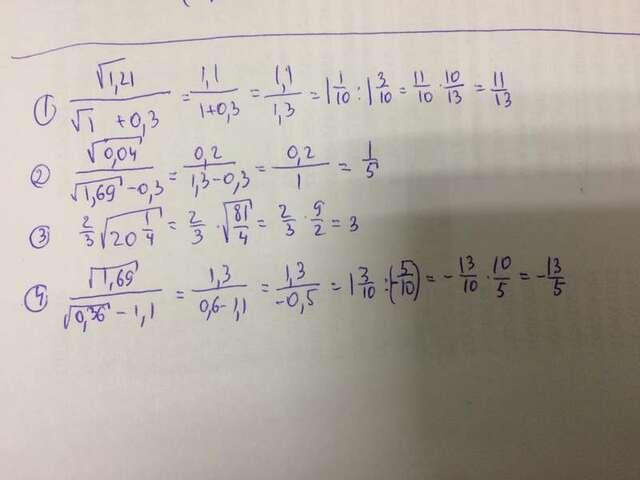 ① √1,21 / (√1 + 0,3) = 1,1 / (1+0,3) = 1,1 / 1,3 = 1 1/10 : 1 3/10 = 11/10 · 10/13 = 11/13
② √0,04 / (√1,69 - 0,3) = 0,2 / (1,3-0,3) = 0,2 / 1 = 1/5
③ 2/3 √(20 1/4) = 2/3 · √(81/4) = 2/3 · 9/2 = 3
④ √1,69 / (√0,36 - 1,1) = 1,3 / (0,6-1,1) = 1,3 / -0,5 = 1 3/10 : (-5/10) = - 13/10 · 10/5 = - 13/5